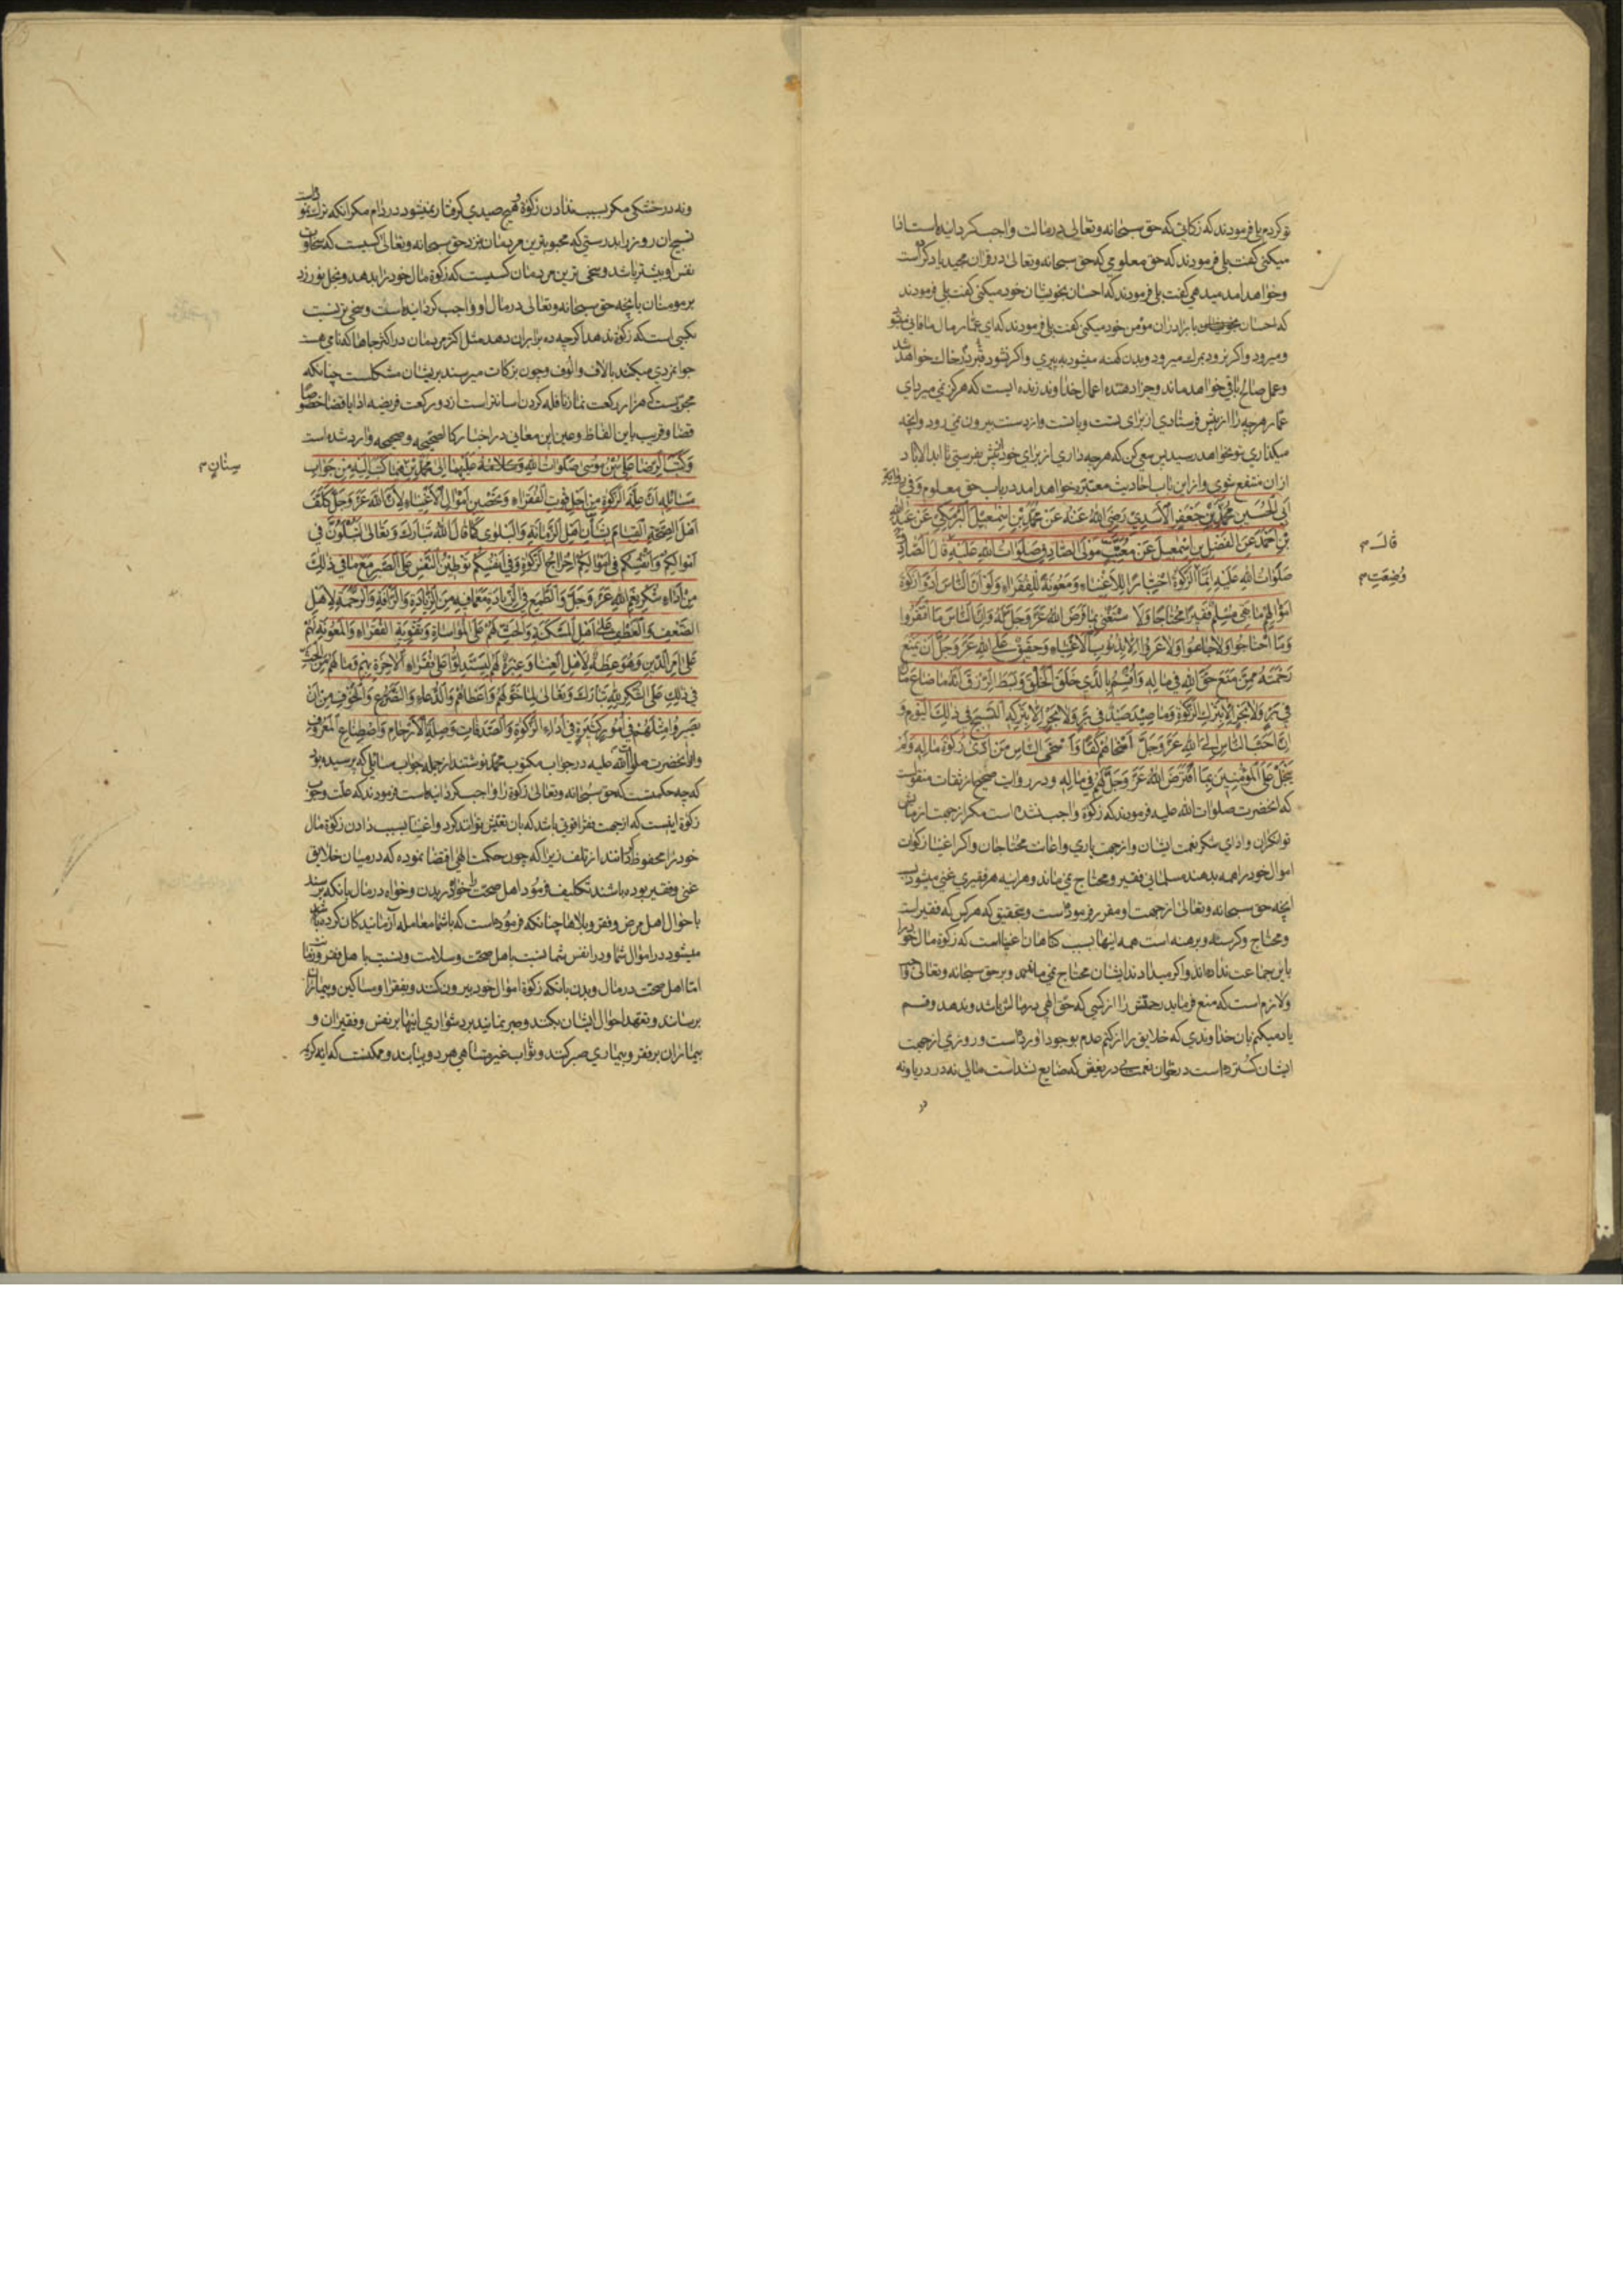 تو کردم بلی فرمودند که زکاتی که حق سبحانه وتعالی در مالت واجب کردانیده است ادا
میکنی کفت بلی فرمودند که حق معلومی که حق سبحانه وتعالی در قران مجید یاد کرده است
وخواهد امد میدهی کفت بلی فرمودند که احسان بخویشان خود میکنی کفت بلی فرمودند
که احسان با برادران مؤمن خود میکنی کفت بلی فرمودند که ای عمار مال فانی میشود
ومیرود واکر نرود بمرک میرود وبدن کهنه میشود به پیری واکر نشود در قبر خاک خواهد شد
وعمل صالح باقی خواهد ماند وجزا دهنده اعمال خداوند زنده ایست که هرکز نمی میرد ای
عمار هرچه را از پیش فرستادی از برای تست وباتست واز دست بیرون نمی رود وانچه
میکذاری بتو نخواهد رسید پس سعی کن که هرچه داری از برای خود پیش بفرستی تا ابد الاباد
ازان منتفع شوی وازین باب احادیث معتبره خواهد امد در باب حق معلوم وَفی روایة
اَبِی الْحُسَینِ مُحَمَّدِ بْنِ جَعْفَرِ الْاَسَدِیِّ رَضِیَ اللهُ عَنْهُ عَنْ مُحَمَّدِ بْنِ اِسْمٰعِیلَ الْبَرْمَکِیِّ عَنْ عَبْدِ اللهِ
بْنِ اَحْمَدَ عَنِ الْفَضْلِ بْنِ اِسْمٰعِیلَ عَنْ مُعَتِّبٍ مَوْلَی الصّادِقِ صَلَوَاتُ اللهِ عَلَیْهِ قالَ الصّادِقُ
قال م
صَلَوَاتُ اللهِ عَلَیْهِ اِنَّمَا الزَّکٰوةُ اخْتِبَارًا لِلْاَغْنِیَاءِ وَمَعُونَةً لِلْفُقَرَاءِ وَلَوْ اَنَّ النّاسَ اَدَّوْا زَکٰوةَ
وُضِعَتِ م
اَمْوَالِهِمْ مَا بَقِیَ مُسْلِمٌ فَقِیرًا مُحْتَاجًا وَلَاسْتَغْنٰی بِمَا فَرَضَ اللهُ عَزَّ وَجَلَّ لَهُ وَاِنَّ النّاسَ مَا افْتَقَرُوا
وَمَا احْتَاجُوا وَلَا جَاعُوا وَلَا عَرُوا اِلَّا بِذُنُوبِ الْاَغْنِیَاءِ وَحَقِیقٌ عَلَی اللهِ عَزَّ وَجَلَّ اَنْ یَمْنَعَ
رَحْمَتَهُ مِمَّنْ مَنَعَ حَقَّ اللهِ فِی مَالِهِ وَاُقْسِمُ بِالَّذِی خَلَقَ الْخَلْقَ وَبَسَطَ الرِّزْقَ اَنَّهُ مَا ضَاعَ مَالٌ
فِی بَرٍّ وَلَا بَحْرٍ اِلَّا بِتَرْکِ الزَّکٰوةِ وَمَا صِیدَ صَیْدٌ فِی بَرٍّ وَلَا بَحْرٍ اِلَّا بِتَرْکِهِ التَّسْبِیحَ فِی ذٰلِکَ الْیَوْمِ وَ
اِنَّ اَحَبَّ النّاسِ اِلَی اللهِ عَزَّ وَجَلَّ اَسْخَاهُمْ کَفًّا وَاَسْخَی النّاسِ مَنْ اَدّٰی زَکٰوةَ مَالِهِ وَلَمْ
یَبْخَلْ عَلَی الْمُؤْمِنِینَ بِمَا افْتَرَضَ اللهُ عَزَّ وَجَلَّ لَهُمْ فِی مَالِهِ ودر روایت صحیح از ثقات منقولست
که انحضرت صلوات الله علیه فرمودند که زکوة واجب نشده است مکر از جهت ازمایش
توانکران وادای شکر نعمت ایشان واز جهت یاری واعانت محتاجان واکر اغنیا زکوات
اموال خود را همه بدهند مسلمانی فقیر ومحتاج نمی ماند وهراینه هر فقیری غنی میشود بسبب
انچه حق سبحانه وتعالی از جهت او مقرر فرموده است وبتحقیق که هر کس که فقیر است
ومحتاج وکرسنه وبرهنه است همه اینها بسبب کناهان اغنیا است که زکوة مال خود را
باین جماعت نداده اند واکر میدادند ایشان محتاج نمی ماندند وبر حق سبحانه وتعالی
ولازم است که منع فرماید رحمتش را از کسی که حق الهی در مالش باشد وندهد وقسم
یاد میکنم بان خداوندی که خلایق را از کتم عدم بوجود اورده است وروزی از جهت
ایشان کسترده است در خوان نعمت که ضایع نشده است مالی نه در دریا ونه
در
ونه در خشکی مکر بسبب ندادن زکوة وهیچ صیدی کرفتار نمیشود در دام مکر انکه ترک نموده است
تسبیح ان روز را بدرستی که محبوبترین مردمان نزد حق سبحانه وتعالی کسیست که سخاوت
نفس او بیشتر باشد وسخی ترین مردمان کسیست که زکوة مال خود را بدهد وبخل نورزد
بر مومنان بانچه حق سبحانه وتعالی در مال او واجب کردانیده است وسخی تر نیست
کسی است که زکوة ندهد اکرچه ده برابر ان دهد مثل اکثر مردمان در اکثر جاها که نامی هست
جوانمردی میکند بالاف والوف وچون بزکات میرسند بر ایشان مشکلست چنانکه
مجربست که هزار رکعت نماز نافله کردن اسانتر است از دو رکعت فریضه ادا یا قضا خصوصا
قضا وقریب باین الفاظ وعین این معانی در اخبار کالصحیحه وصحیحه وارد شده است
وَکَتَبَ الرِّضَا عَلِیُّ بْنُ مُوسٰی صَلَوَاتُ اللهِ وَسَلَامُهُ عَلَیْهِمَا اِلٰی مُحَمَّدِ بْنِ فِیمَا کَتَبَ اِلَیْهِ مِنْ جَوَابِ
سِنَانٍ م
مَسَائِلِهِ اَنَّ عِلَّةَ الزَّکٰوةِ مِنْ اَجْلِ قُوتِ الْفُقَرَاءِ وَتَحْصِینِ اَمْوَالِ الْاَغْنِیَاءِ لِاَنَّ اللهَ عَزَّ وَجَلَّ کَلَّفَ
اَهْلَ الصِّحَّةِ الْقِیَامَ بِشَأْنِ اَهْلِ الزَّمَانَةِ وَالْبَلْوٰی کَمَا قَالَ اللهُ تَبَارَکَ وَتَعَالٰی لَتُبْلَوُنَّ فِی
اَمْوَالِکُمْ وَاَنْفُسِکُمْ فِی اَمْوَالِکُمْ اِخْرَاجُ الزَّکٰوةِ وَفِی اَنْفُسِکُمْ تَوْطِینُ النَّفْسِ عَلَی الصَّبْرِ مَعَ مَا فِی ذٰلِکَ
مِنْ اَدَاءِ شُکْرِ نِعَمِ اللهِ عَزَّ وَجَلَّ وَالطَّمَعِ فِی الزِّیَادَةِ مَعَ مَا فِیهِ مِنَ الزِّیَادَةِ وَالرَّأْفَةِ وَالرَّحْمَةِ لِاَهْلِ
الضَّعْفِ وَالْعَطْفِ عَلٰی اَهْلِ الْمَسْکَنَةِ وَالْحَثِّ لَهُمْ عَلَی الْمُوَاسَاةِ وَتَقْوِیَةِ الْفُقَرَاءِ وَالْمَعُونَةِ لَهُمْ
عَلٰی اَمْرِ الدِّینِ وَهُوَ عِظَةٌ لِاَهْلِ الْغِنَا وَعِبْرَةٌ لَهُمْ لِیَسْتَدِلُّوا عَلٰی فُقَرَاءِ الْاٰخِرَةِ بِهِمْ وَمَا لَهُمْ مِنَ الْحَثِّ
فِی ذٰلِکَ عَلَی الشُّکْرِ لِلهِ تَبَارَکَ وَتَعَالٰی لِمَا خَوَّلَهُمْ وَاَعْطَاهُمْ وَالدُّعَاءِ وَالتَّضَرُّعِ وَالْخَوْفِ مِنْ اَنْ
یَصِیرُوا مِثْلَهُمْ فِی اُمُورٍ کَثِیرَةٍ فِی اَدَاءِ الزَّکٰوةِ وَالصَّدَقَاتِ وَصِلَةِ الْاَرْحَامِ وَاصْطِنَاعِ الْمَعْرُوفِ
وانحضرت صلوات الله علیه در جواب مکتوب محمد نوشتند از جمله جواب مسائلی که پرسیده بود
که چه حکمتست که حق سبحانه وتعالی زکوة را واجب کردانیده است فرمودند که علت وجوب
زکوة اینست که از جهت فقرا قوتی باشد که بان تعیش توانند کرد واغنیا بسبب دادن زکوة مال
خود را محفوظ کردانند از تلف زیرا که چون حکمت الهی اقتضا نموده که در میان خلایق
غنی وفقیر بوده باشند تکلیف فرمود اهل صحت را خواه در بدن وخواه در مال بانکه برسند
باحوال اهل مرض وفقر وبلاها چنانکه فرموده است که باشما معامله آزمایندکان کرده
میشود در اموال شما ودر انفس شما نسبت باهل صحت وسلامت ونسبت باهل فقر
اما اهل صحت در مال وبدن بانکه زکوة اموال خود بیرون کنند وبفقرا ومساکین وبیماران
برسانند وتعهد احوال ایشان بکنند وصبر نمایند بر دشواری اینها بر نفس وفقیران و
بیماران بر فقر وبیماری صبر کنند وثواب غیر متناهی هر دو بیابند وممکنست که